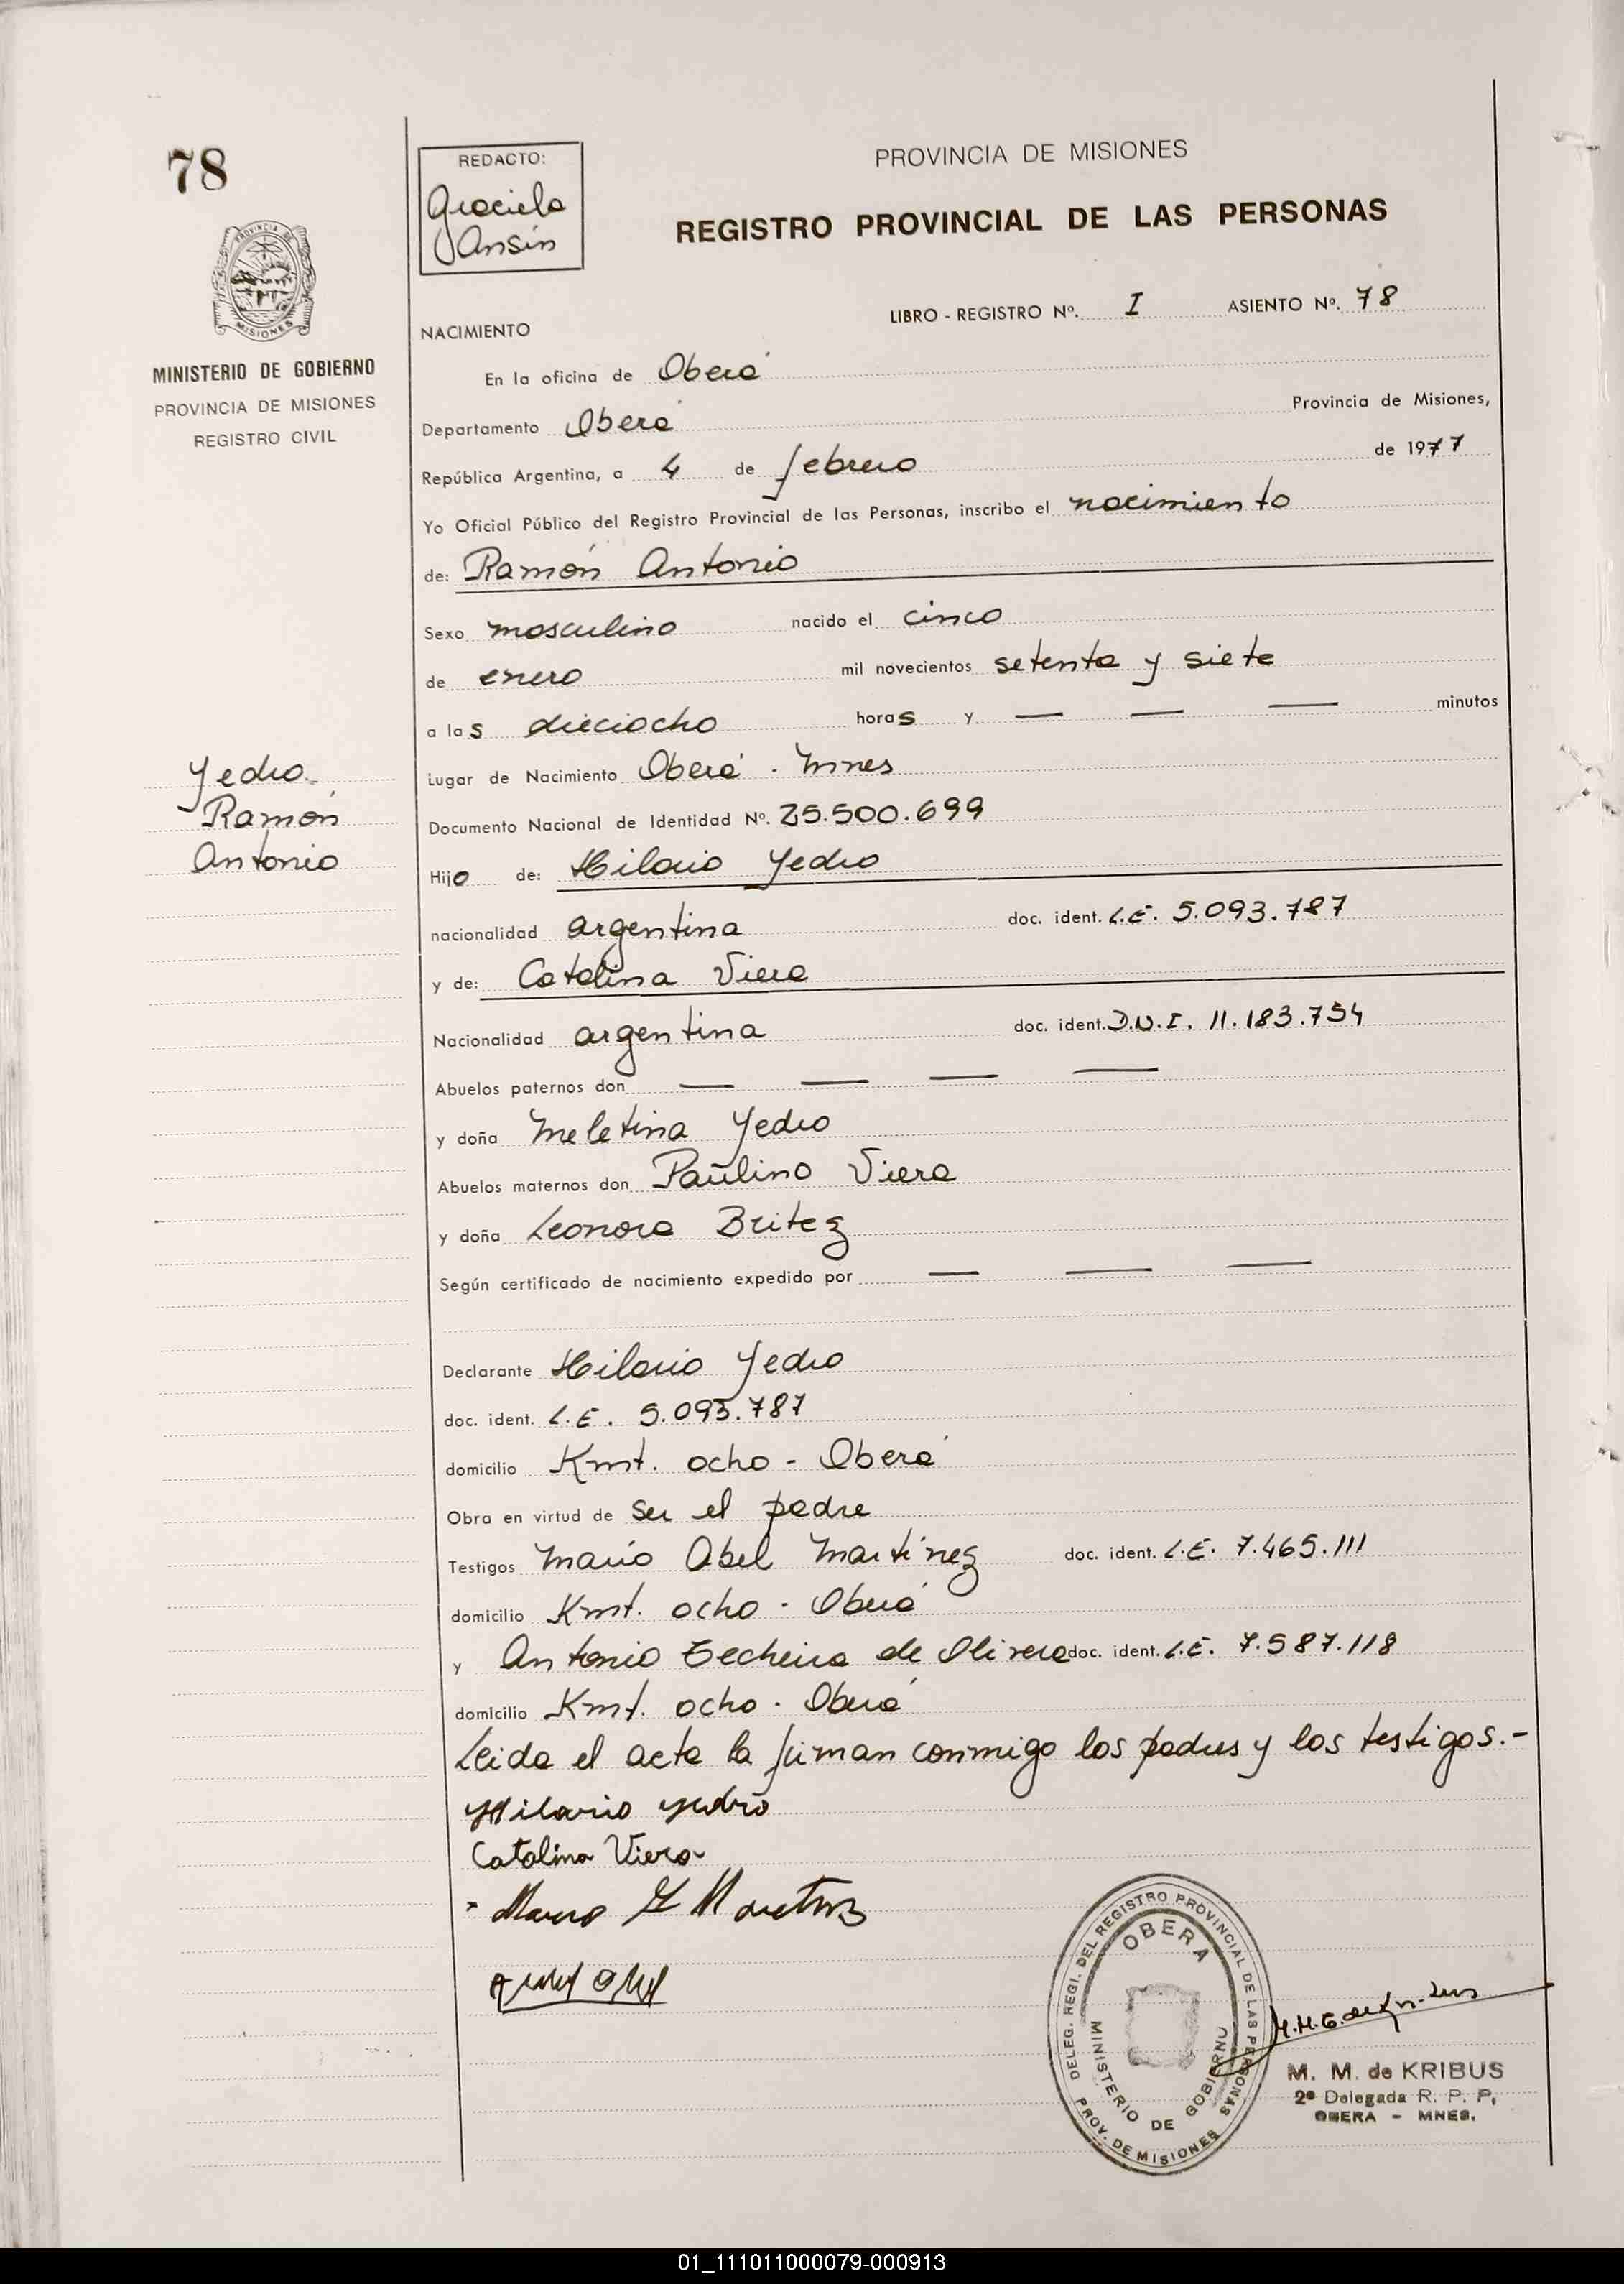 78
PROVINCIA DE MISIONES
MINISTERIO DE GOBIERNO
PROVINCIA DE MISIONES
REGISTRO CIVIL
Yedro
Ramón
Antonio
REDACTO:
Graciela
Ansin
PROVINCIA DE MISIONES
REGISTRO PROVINCIAL DE LAS PERSONAS
LIBRO - REGISTRO Nº. I ASIENTO Nº. 78
NACIMIENTO
En la oficina de Oberá
Departamento Oberá Provincia de Misiones,
República Argentina, a 4 de febrero de 1977
Yo Oficial Público del Registro Provincial de las Personas, inscribo el nacimiento
de: Ramón Antonio
Sexo masculino nacido el cinco
de enero mil novecientos setenta y siete
a las dieciocho horas y — — — minutos
Lugar de Nacimiento Oberá - Mnes
Documento Nacional de Identidad Nº. 25.500.699
Hijo de: Hilario Yedro
nacionalidad argentina doc. ident. L.E. 5.093.787
y de: Catalina Viera
Nacionalidad argentina doc. ident. D.N.I. 11.183.754
Abuelos paternos don — — — —
y doña Meletina Yedro
Abuelos maternos don Paulino Viera
y doña Leonora Britez
Según certificado de nacimiento expedido por — — —
Declarante Hilario Yedro
doc. ident. L.E. 5.093.787
domicilio Kmt. ocho - Oberá
Obra en virtud de ser el padre
Testigos Mario Abel Martinez doc. ident. L.E. 7.465.111
domicilio Kmt. ocho - Oberá
y Antonio Techeira de Olivera doc. ident. L.E. 7.587.118
domicilio Kmt. ocho - Oberá
Leida el acta la firman conmigo los padres y los testigos.-
Hilario Yedro
Catalina Viera
DELEG. REGI. DEL REGISTRO PROVINCIAL DE LAS PERSONAS
OBERA
MINISTERIO DE GOBIERNO
PROV. DE MISIONES
M. M. de KRIBUS
2ª Delegada R. P. P.
OBERA - MNES.
01_111011000079-000913